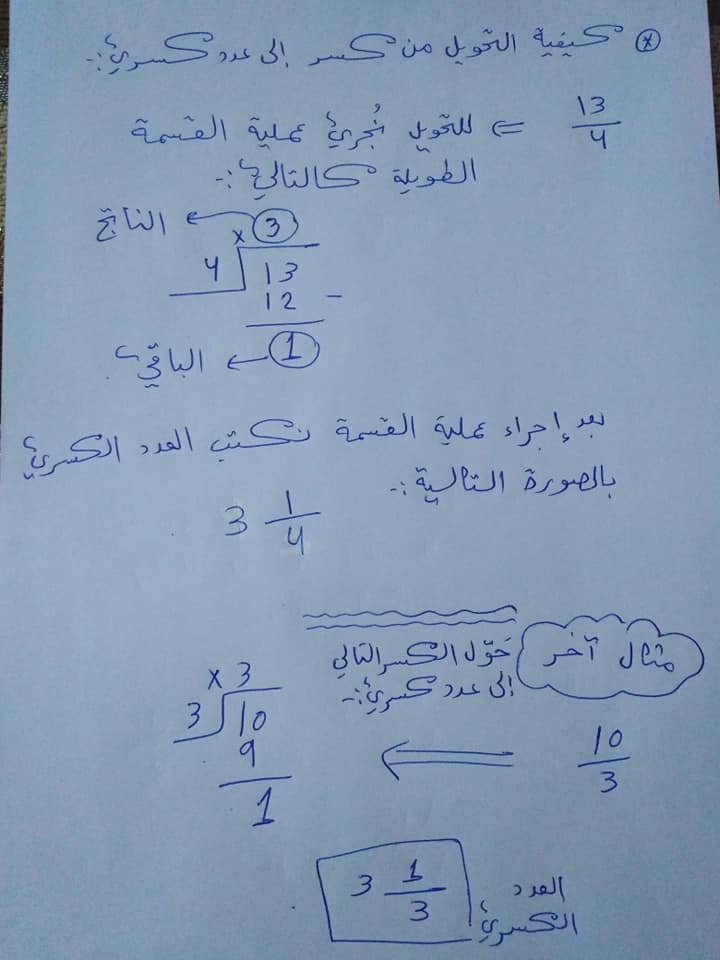 * كيفية التحويل من كسر إلى عدد كسري:-
13/4 ⇐ للتحويل نُجري عملية القسمة
الطويلة كالتالي:-
× 3 ← الناتج
4 13
12 -
1 ← الباقي
بعد إجراء عملية القسمة نكتب العدد الكسري
بالصورة التالية:-
3 1/4
مثال آخر
حَوّل الكسر التالي
إلى عدد كسري:-
10/3 ⇐
× 3
3 10
9
1
العدد
الكسري
3 1/3